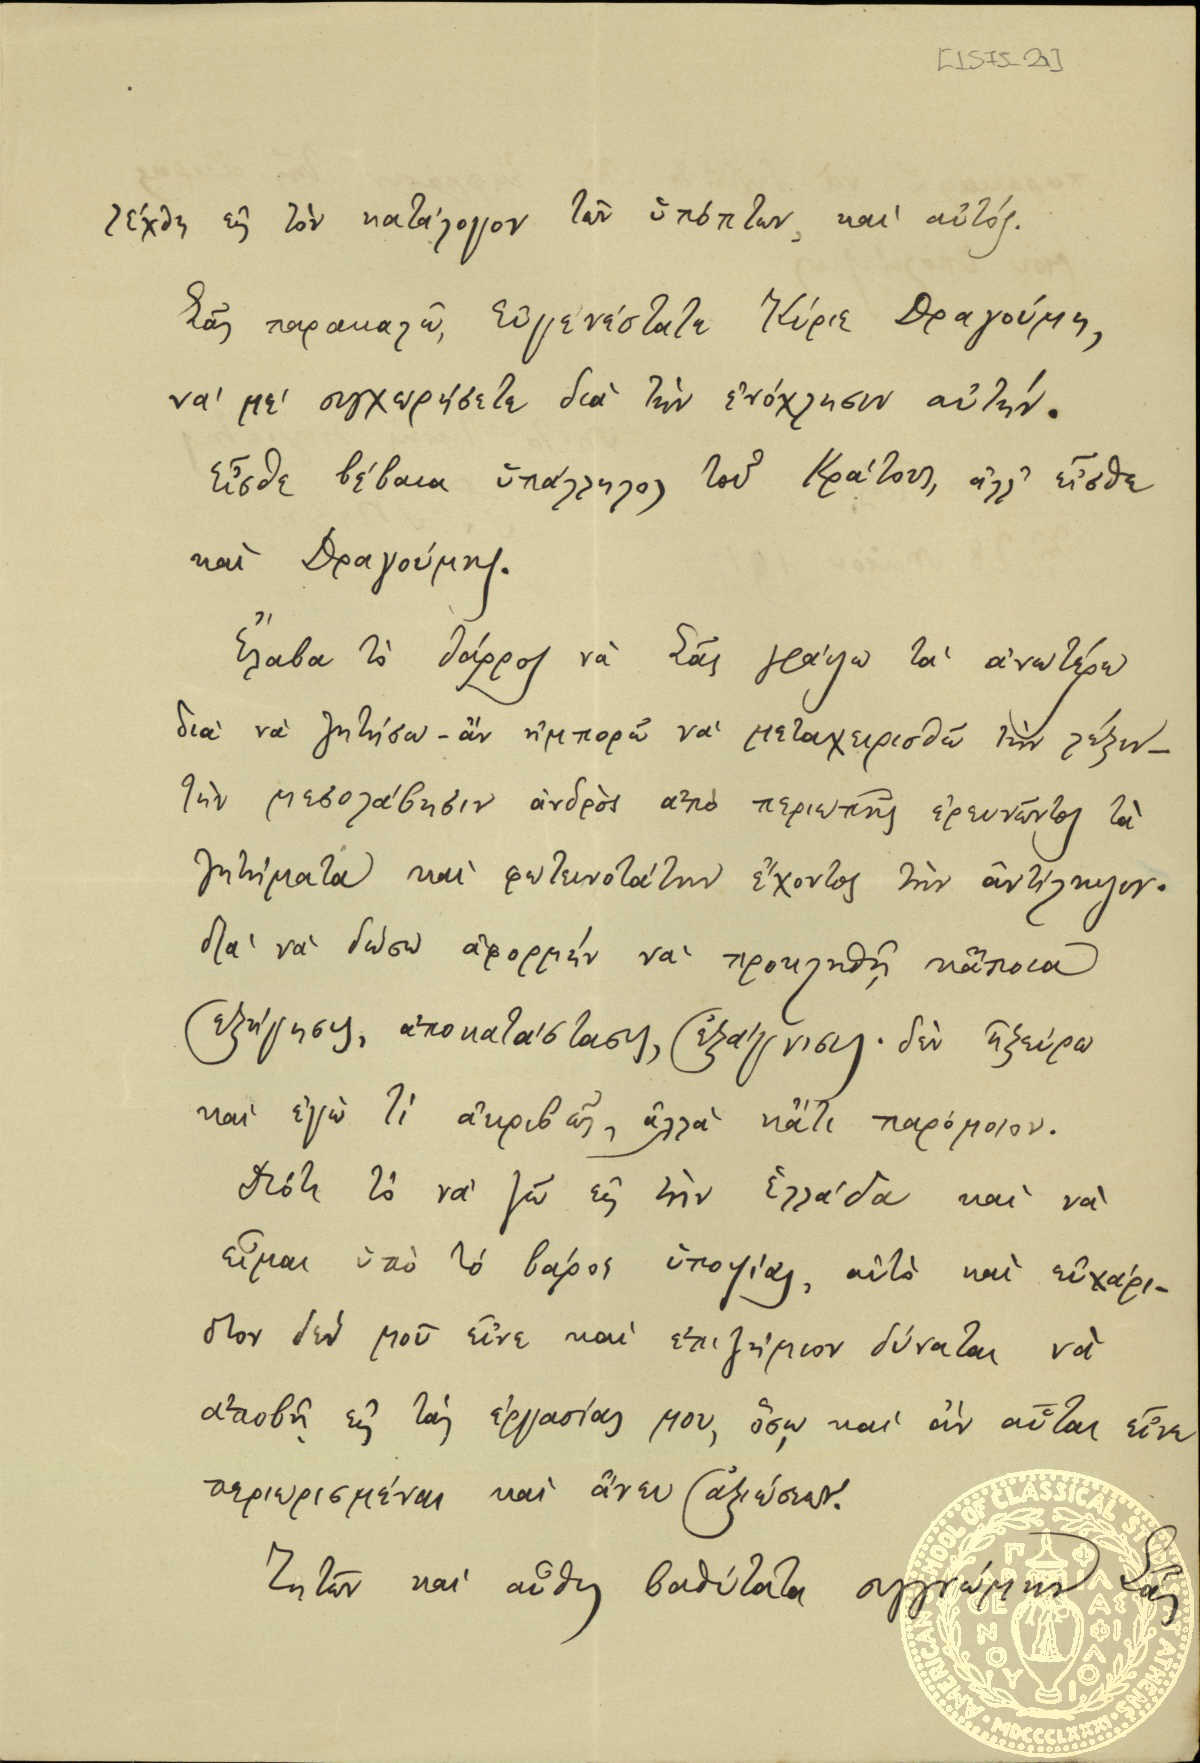 [1575-2α]
λέχθη εἰς τὸν κατάλογον τῶν ὑπόπτων, καὶ αὐτός.
Σᾶς παρακαλῶ, εὐμενέστατε Κύριε Δραγούμη,
νὰ μὲ συγχωρήσετε διὰ τὴν ἐνόχλησιν αὐτήν.
Εἶσθε βέβαια ὑπάλληλος τοῦ Κράτους, ἀλλ' εἶσθε
καὶ Δραγούμης.
Ἔλαβα τὸ θάρρος νὰ Σᾶς γράψω τὰ ἀνωτέρω
διὰ νὰ ζητήσω - ἂν ἠμπορῶ νὰ μεταχειρισθῶ τὴν λέξιν -
τὴν μεσολάβησιν ἀνδρὸς ἀπὸ περιωπῆς ἐρευνῶντος τὰ
ζητήματα καὶ φωτεινοτάτην ἔχοντος τὴν ἀντίληψιν.
διὰ νὰ δώσω ἀφορμὴν νὰ προκληθῇ κἄποια
ἐξήγησις, ἀποκατάστασις, ἐξάγνισις· δὲν ἠξεύρω
καὶ ἐγὼ τί ἀκριβῶς, ἀλλὰ κἄτι παρόμοιον.
Διότι τὸ νὰ ζῶ εἰς τὴν Ἑλλάδα καὶ νὰ
εἶμαι ὑπὸ τὸ βάρος ὑποψίας, αὐτὸ καὶ εὐχάρι-
στον δὲν μοῦ εἶνε καὶ ἐπιζήμιον δύναται νὰ
ἀποβῇ εἰς τὰς ἐργασίας μου, ὅσῳ καὶ ἂν αὗται εἶνε
περιωρισμέναι καὶ ἄνευ ἀξιώσεων.
Ζητῶν καὶ αὖθις βαθύτατα συγγνώμην Σᾶς
AMERICAN SCHOOL OF CLASSICAL STUDIES AT ATHENS
MDCCCLXXXI
ΠΑΡΘΕΝΟΥ ΦΙΛΑΣ ΦΙΛΙΟΥ